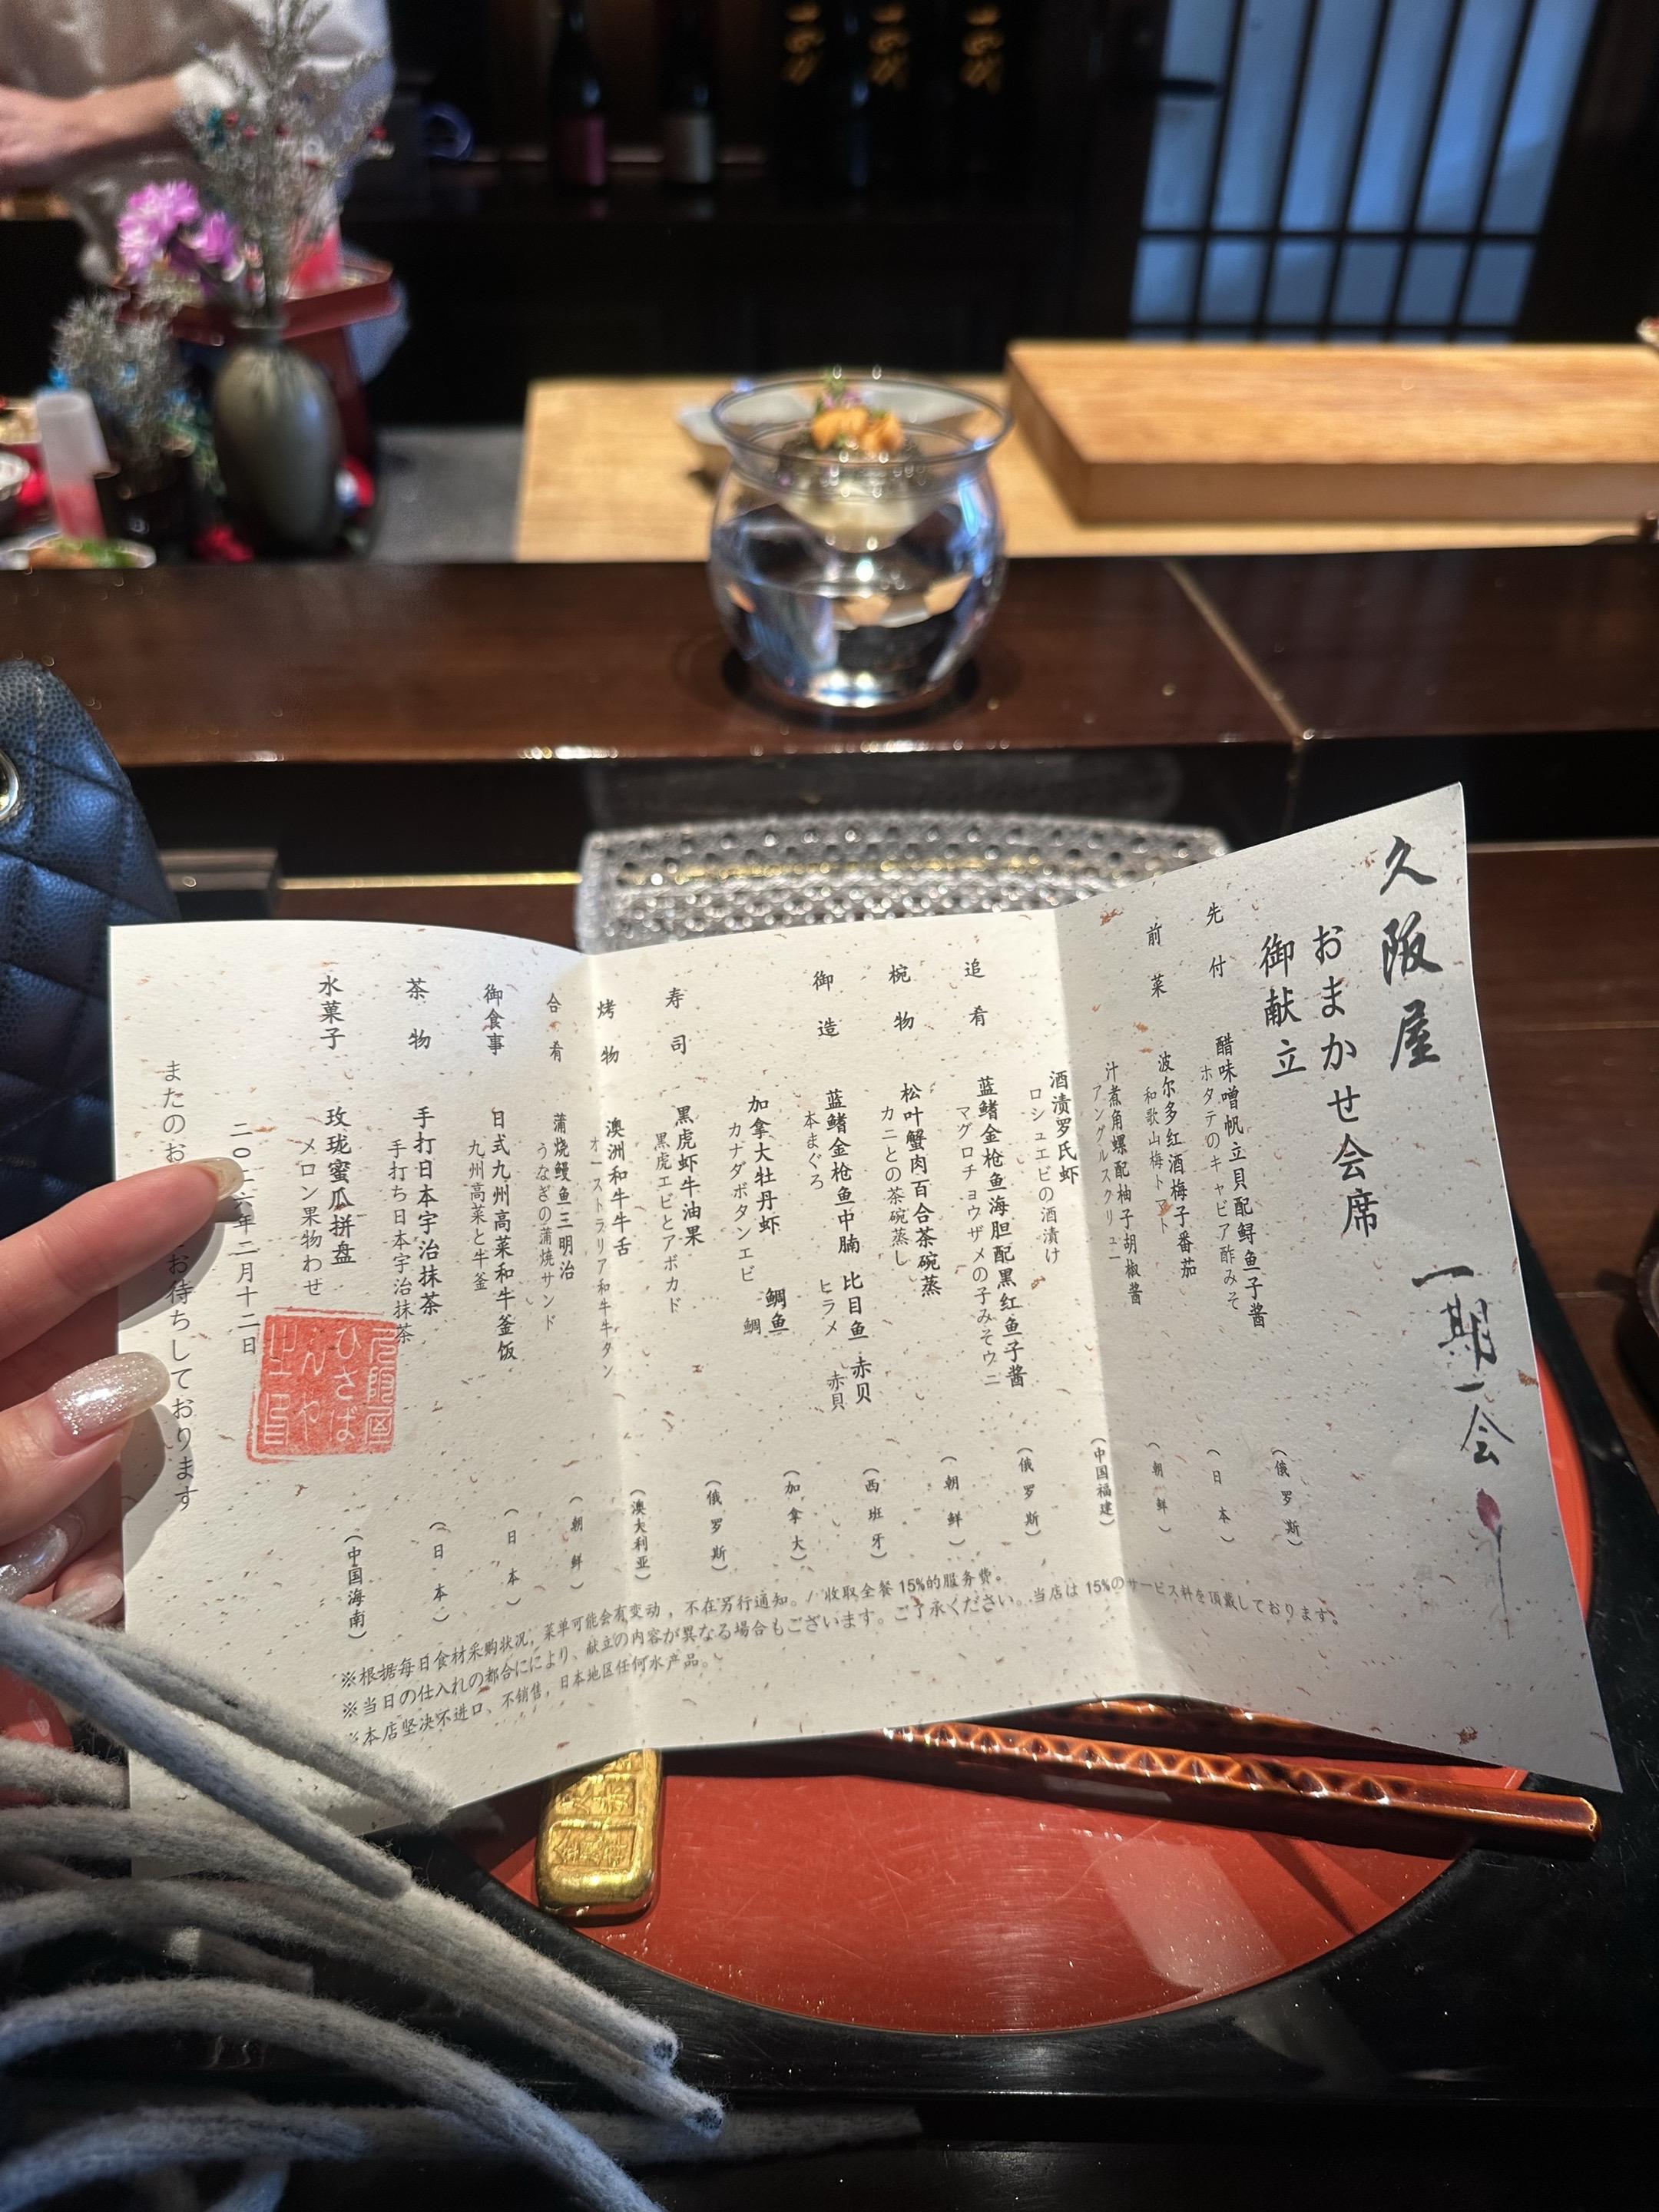 久阪屋
一期一会
おまかせ会席
御献立
先付
醋味噌帆立貝配鲟鱼子酱
ホタテのキャビア酢みそ
（俄罗斯）
前菜
波尔多红酒梅子番茄
和歌山梅トマト
（日本）
汁煮角螺配柚子胡椒酱
アングルスクリュー
（朝鲜）
酒渍罗氏虾
ロシュエビの酒漬け
（中国福建）
追肴
蓝鳍金枪鱼海胆配黑红鱼子酱
マグロチョウザメの子みそウニ
（俄罗斯）
椀物
松叶蟹肉百合茶碗蒸
カニとの茶碗蒸し
（朝鲜）
御造
蓝鳍金枪鱼中腩 比目鱼 赤贝
本まぐろ ヒラメ 赤貝
（西班牙）
加拿大牡丹虾 鲷鱼
カナダボタンエビ 鯛
（加拿大）
寿司
黑虎虾牛油果
黒虎エビとアボカド
（俄罗斯）
烤物
澳洲和牛牛舌
オーストラリア和牛牛タン
（澳大利亚）
合肴
蒲烧鳗鱼三明治
うなぎの蒲焼サンド
（朝鲜）
御食事
日式九州高菜和牛釜饭
九州高菜と牛釜
（日本）
茶物
手打日本宇治抹茶
手打ち日本宇治抹茶
（日本）
水菓子
玫珑蜜瓜拼盘
メロン果物わせ
（中国海南）
二〇二六年二月十二日
またのお
お待ちしております
ひさば
んや
※根据每日食材采购状况，菜单可能会有变动，不在另行通知。/ 收取全餐15%的服务费。
※当日の仕入れの都合ににより、献立の内容が異なる場合もございます。ご了承ください。当店は15%のサービス料を頂戴しております。
※本店坚决不进口、不销售，日本地区任何水产品。